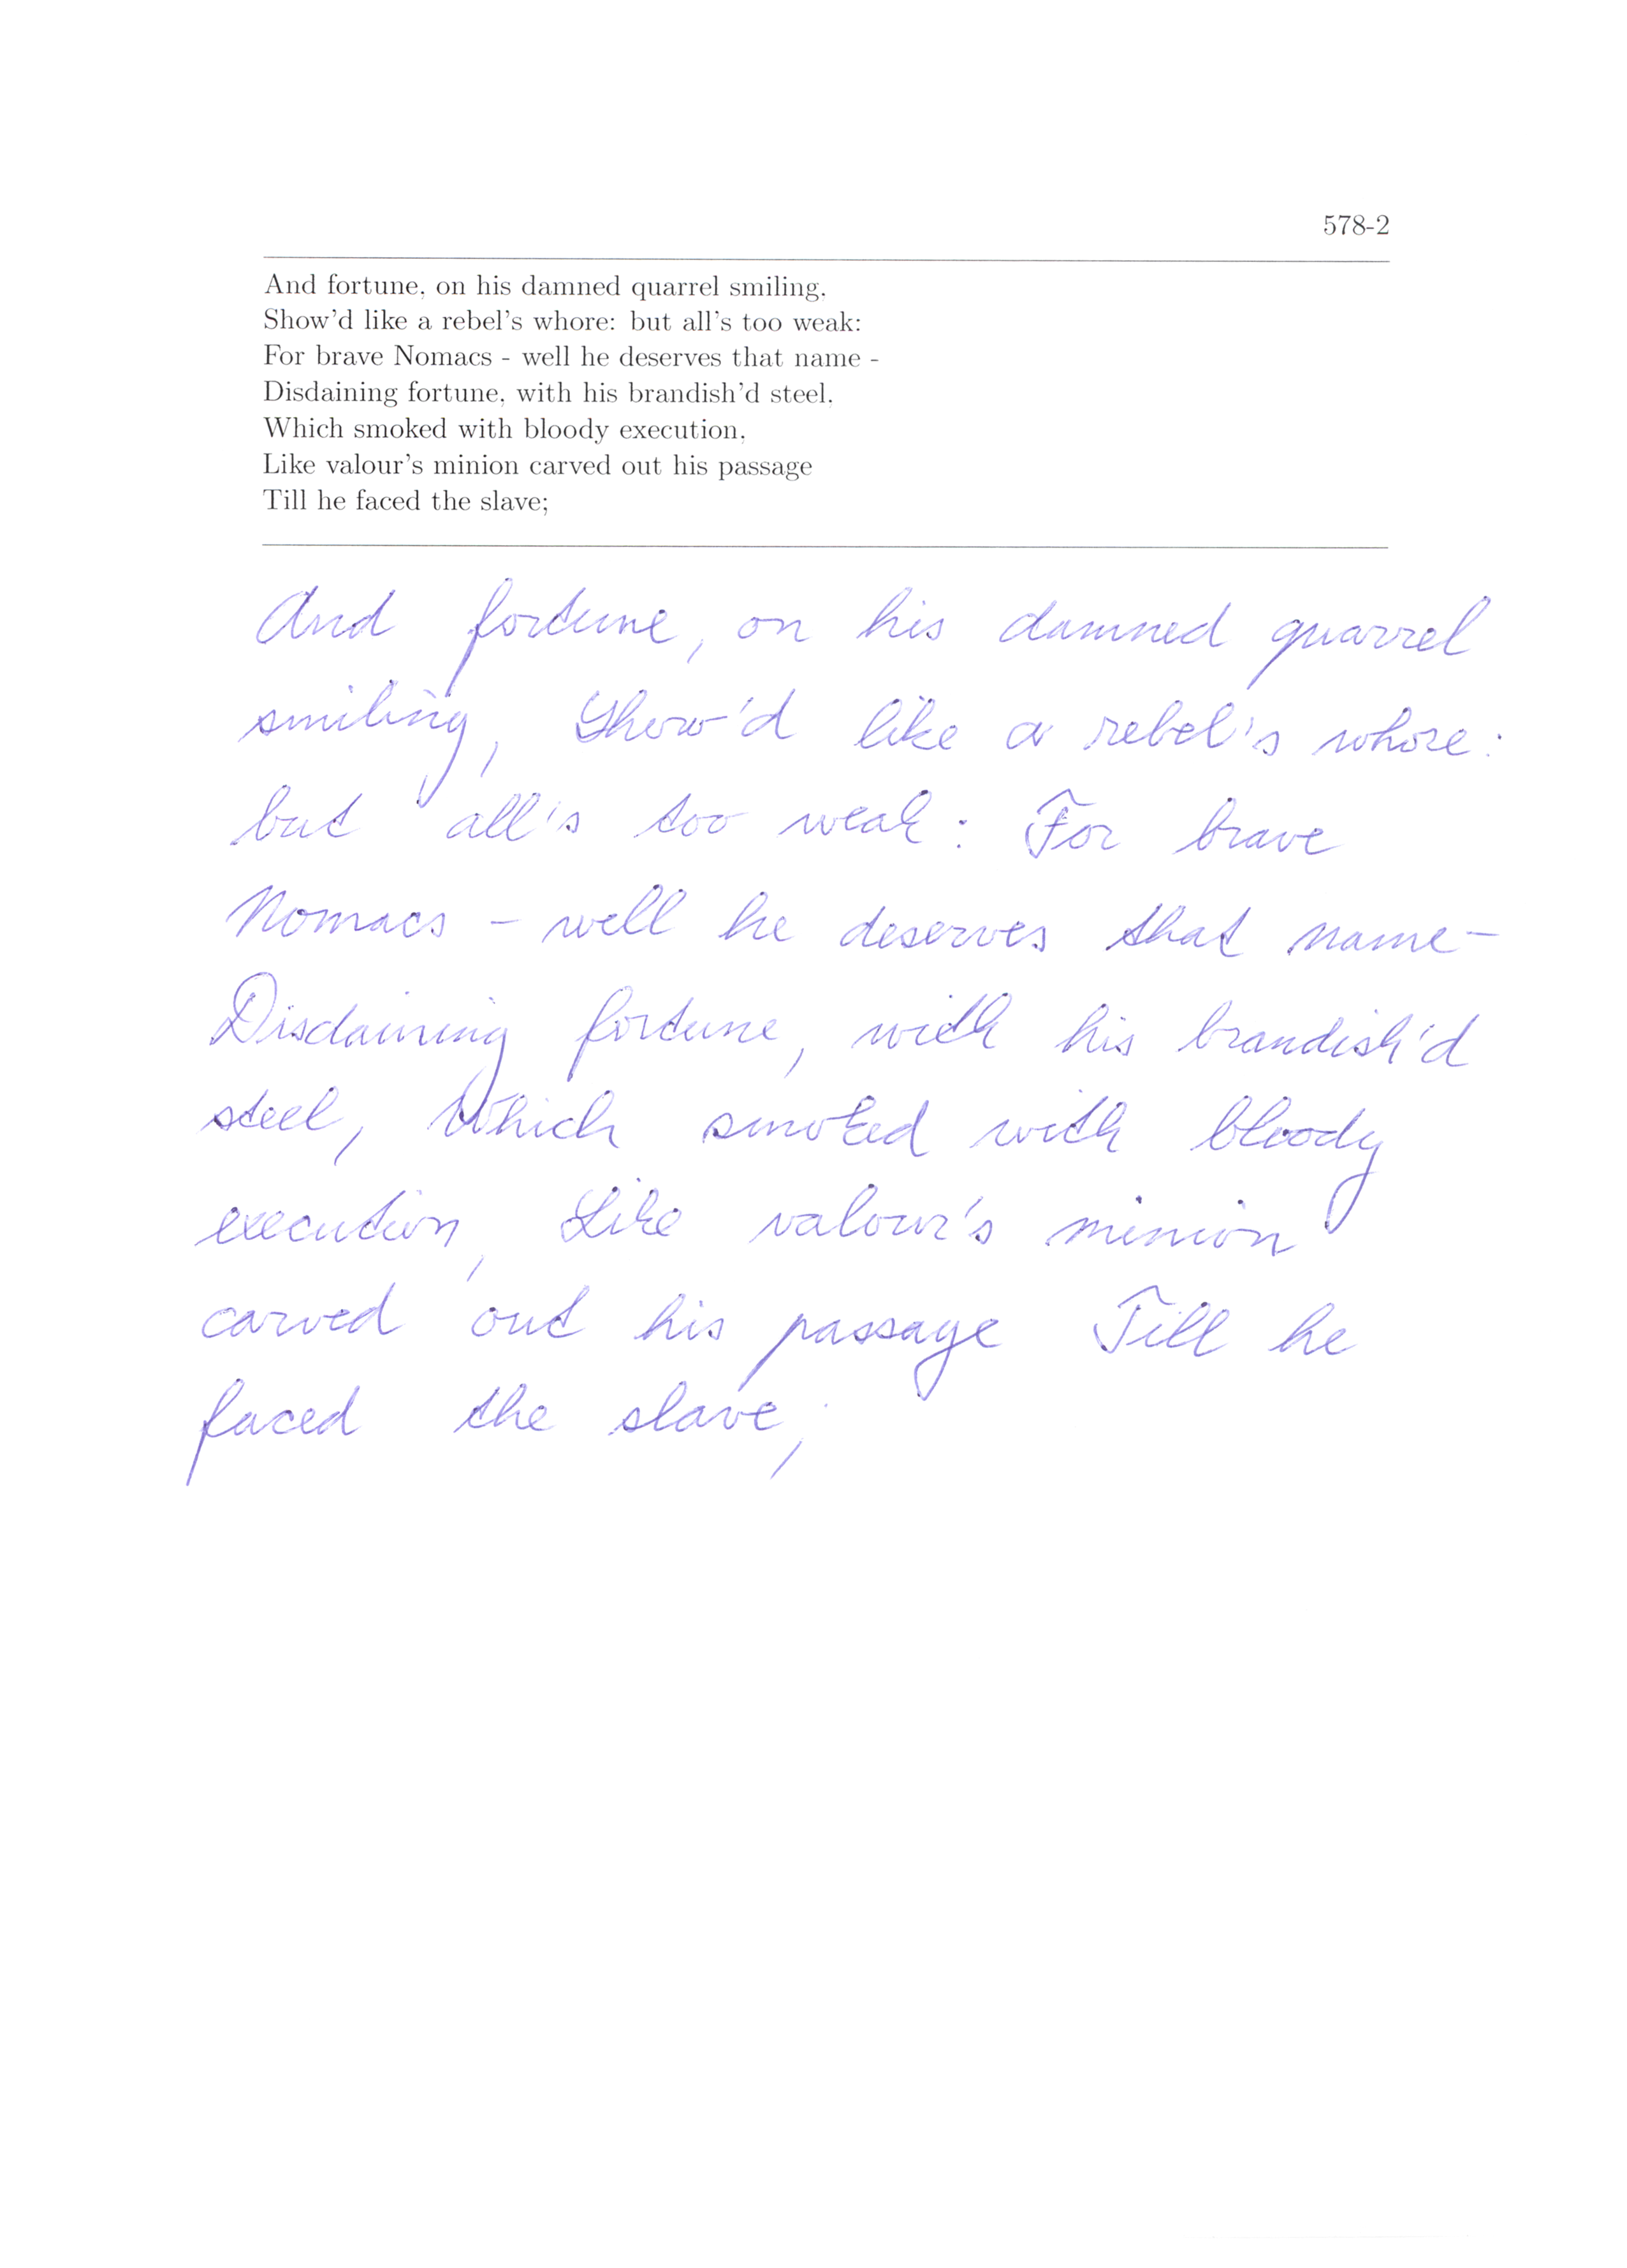 578-2
And fortune, on his damned quarrel smiling,
Show'd like a rebel's whore: but all's too weak:
For brave Nomacs - well he deserves that name -
Disdaining fortune, with his brandish'd steel,
Which smoked with bloody execution,
Like valour's minion carved out his passage
Till he faced the slave;
And fortune, on his damned quarrel
smiling, Show'd like a rebel's whore:
but all's too weak: For brave
Nomacs - well he deserves that name-
Disdaining fortune, with his brandish'd
steel, Which smoked with bloody
execution, Like valour's minion
carved out his passage Till he
faced the slave;